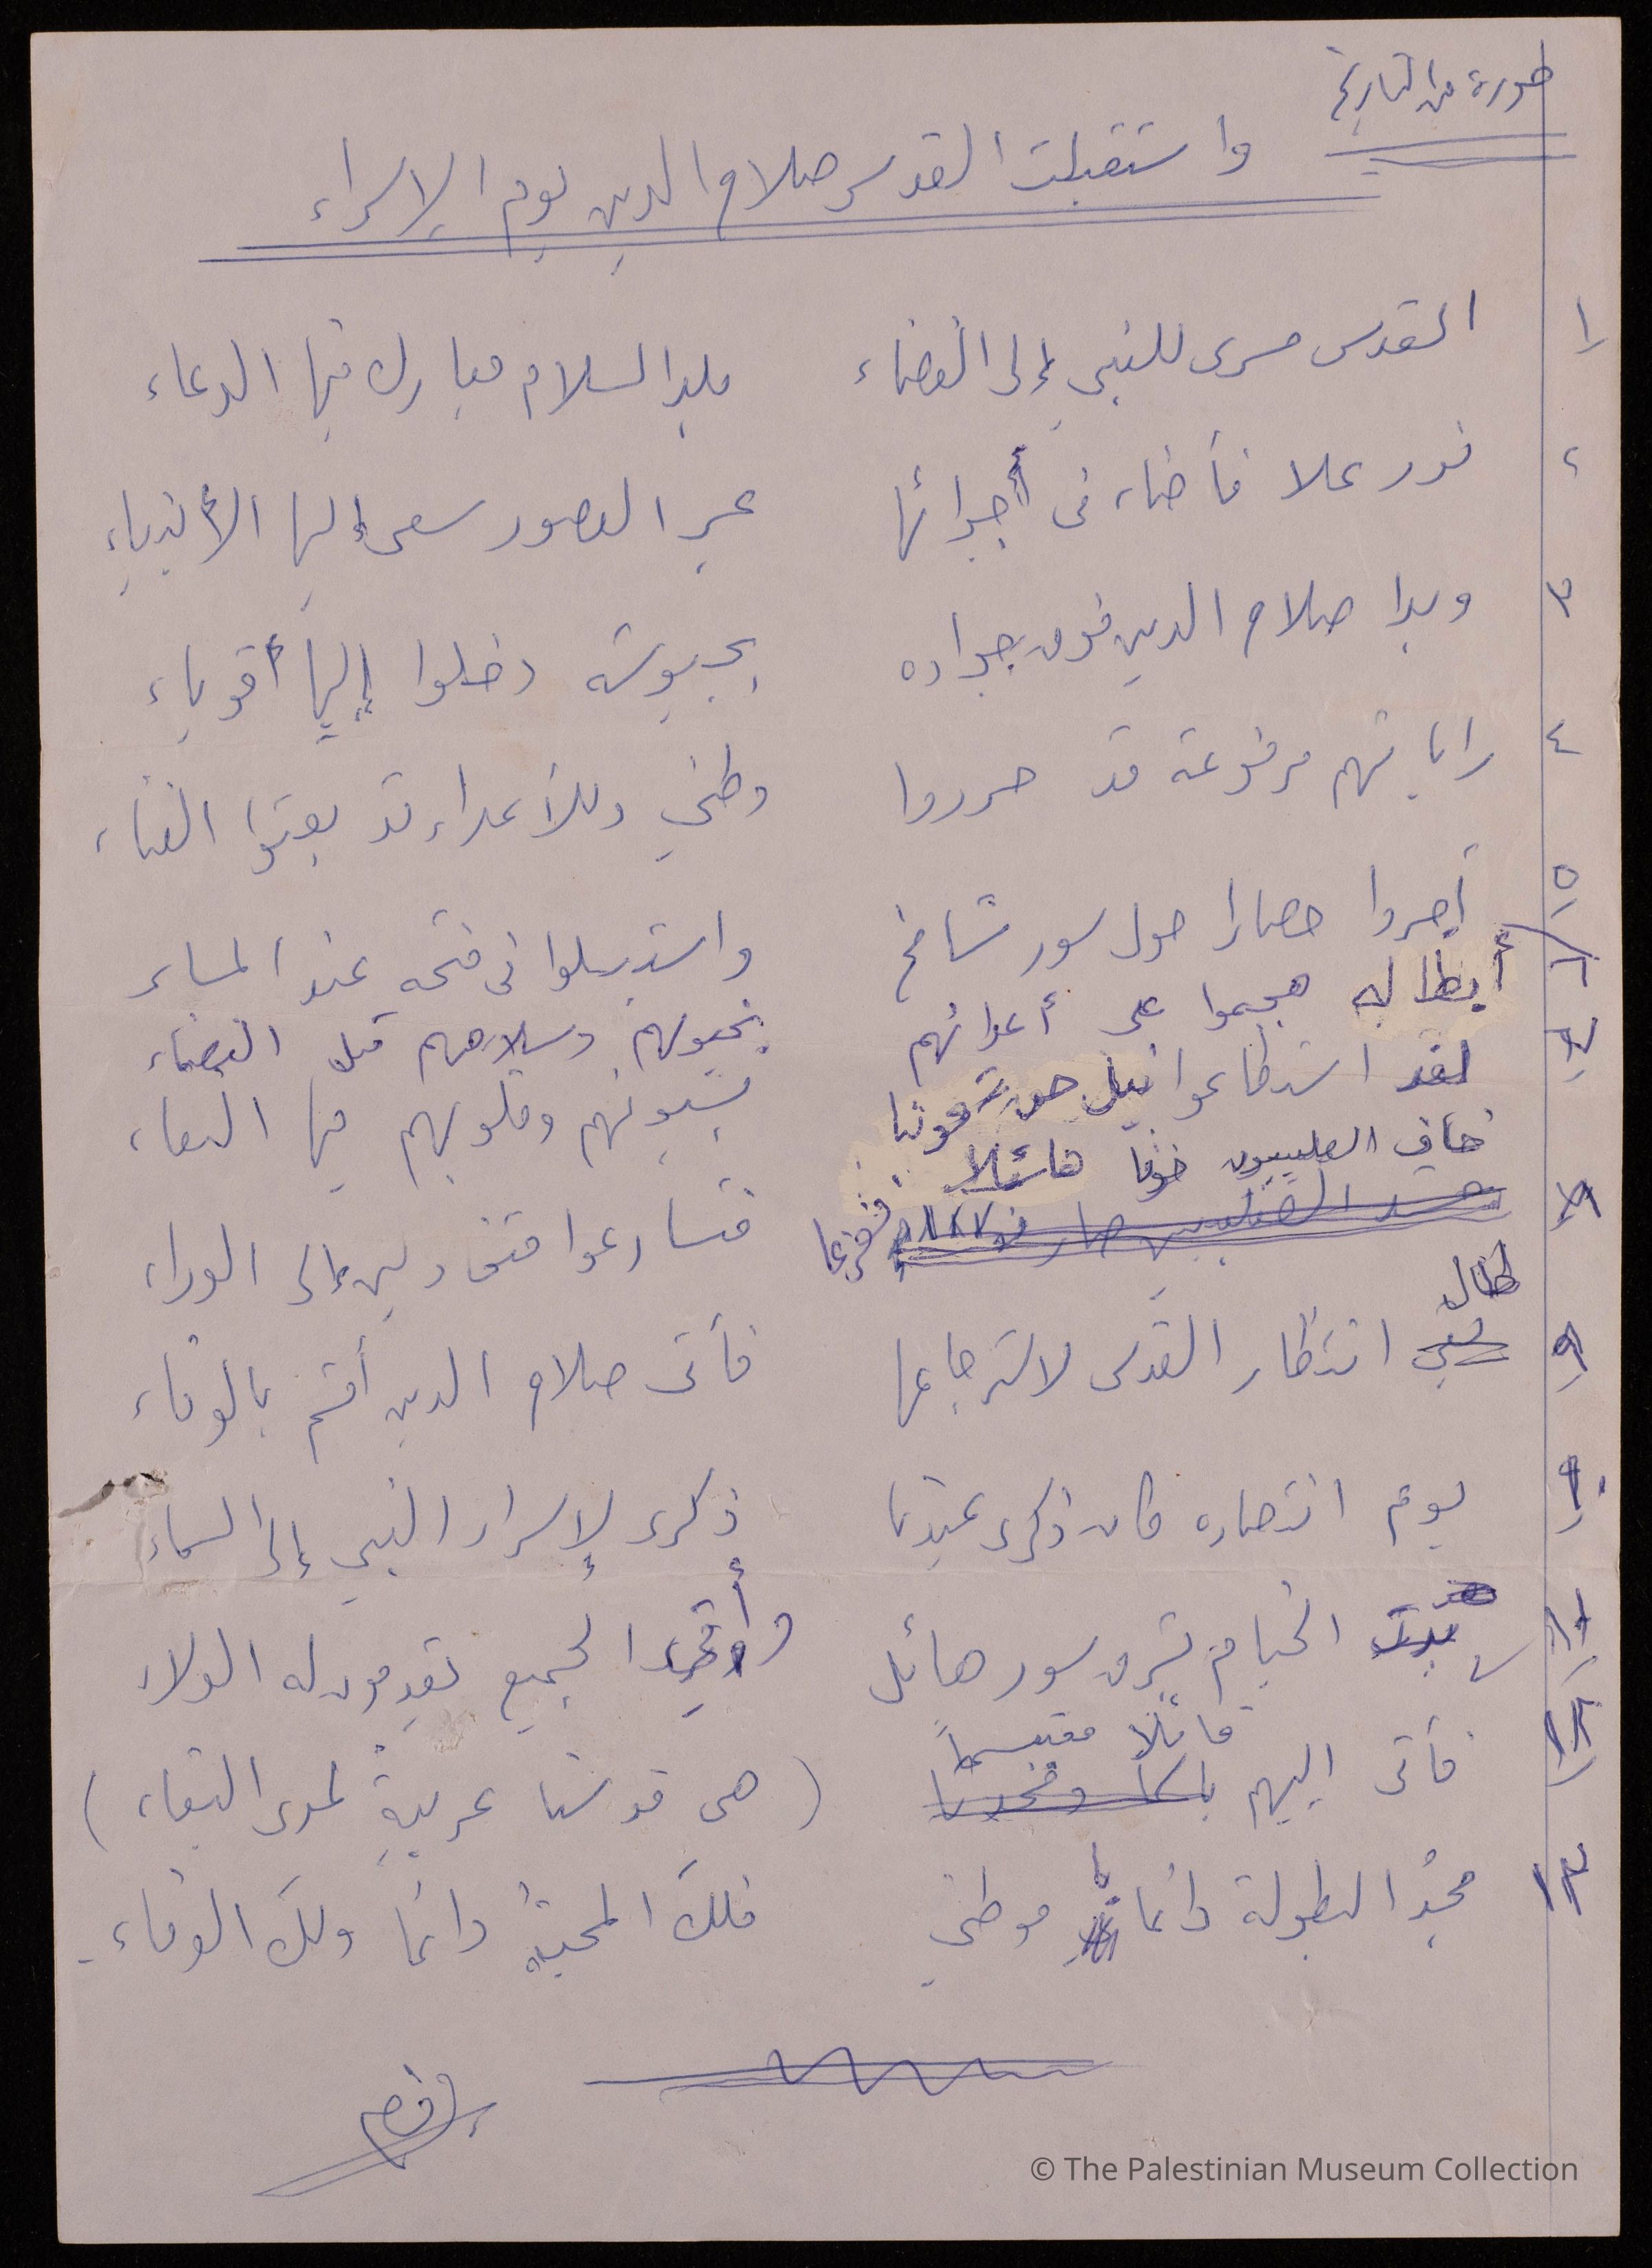 صورة من التاريخ
واستقبلت القدس صلاح الدين يوم الإسراء
١ القدس مسرى للنبي إلى الفضاء بلد السلام مبارك فيها الدعاء
٢ نور علا فأضاء فى أجوائها عبر العصور سعى إليها الأنبياء
٣ وبدا صلاح الدين فوق جواده بجيوشه دخلوا إليها أقوياء
٤ راياتهم مرفوعة قد حرروا وطني وللأعداء قد بعثوا الفناء
٥ أجروا حصارا حول سور شامخ واستبسلوا فى فتحه عند المساء
٦ أبطاله هجموا على أعدائهم بخيولهم وسلاحهم قبل القضاء
٧ لقد استطاعوا نيل حق بسيوفهم وقلوبهم فيها النقاء
٨ خاف الصليبيون خوفا هائلا
فتسارعوا متقهقرين إلى الوراء
طال
٩ انتظار القدس لاسترجاعها فأتى صلاح الدين أقسم بالوفاء
١٠ يوم انتصاره كان ذكرى عيدنا ذكرى لإسراء النبي إلى السماء
١١ الخيام بقرب سور هائل الجميع يقدمون له الولاء
قائلا مبتسماً
١٢ فأتى اليهم باكيا (هي قدسنا عربيةٌ لمدى البقاء)
١٣ مجدُ البطولة دائما يا موطني فلكَ المحبةُ دائما ولكَ الوفاء